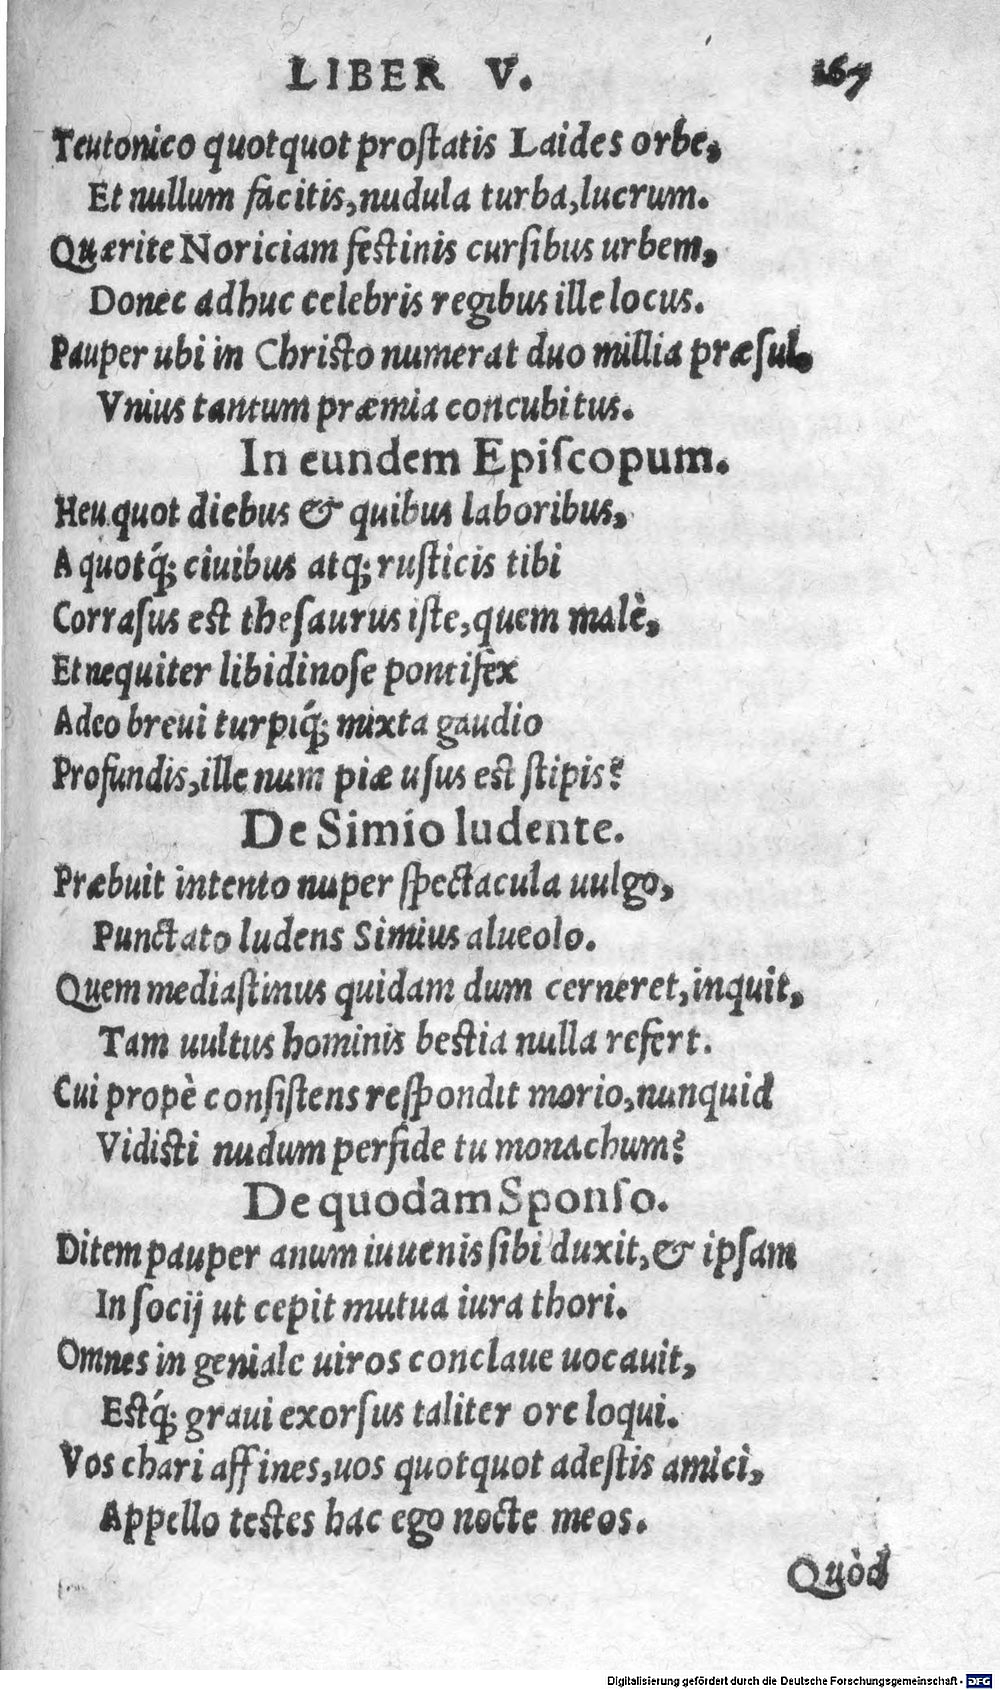 LIBER V. 167
Teutonico quotquot proſtatis Laides orbe,
Et nullum facitis, nudula turba, lucrum.
Quærite Noriciam feſtinis curſibus urbem,
Donec adhuc celebris regibus ille locus.
Pauper ubi in Chriſto numerat duo millia præſul,
Vnius tantum præmia concubitus.
In eundem Epiſcopum.
Heu quot diebus & quibus laboribus,
A quotq́; ciuibus atq; ruſticis tibi
Corraſus eſt theſaurus iſte, quem malè,
Et nequiter libidinoſe pontifex
Adeo breui turpiq́; mixta gaudio
Profundis, ille num piæ uſus eſt ſtipis?
De Simio ludente.
Præbuit intento nuper ſpectacula uulgo,
Punctato ludens Simius alueolo.
Quem mediaſtinus quidam dum cerneret, inquit,
Tam uultus hominis beſtia nulla refert.
Cui propè conſiſtens reſpondit morio, nunquid
Vidiſti nudum perfide tu monachum?
De quodam Sponſo.
Ditem pauper anum iuuenis ſibi duxit, & ipſam
In ſocij ut cepit mutua iura thori.
Omnes in geniale uiros conclaue uocauit,
Eſtq́; graui exorſus taliter ore loqui.
Vos chari affines, uos quotquot adeſtis amici,
Appello teſtes hac ego nocte meos.
Quòd
Digitalisierung gefördert durch die Deutsche Forschungsgemeinschaft - DFG